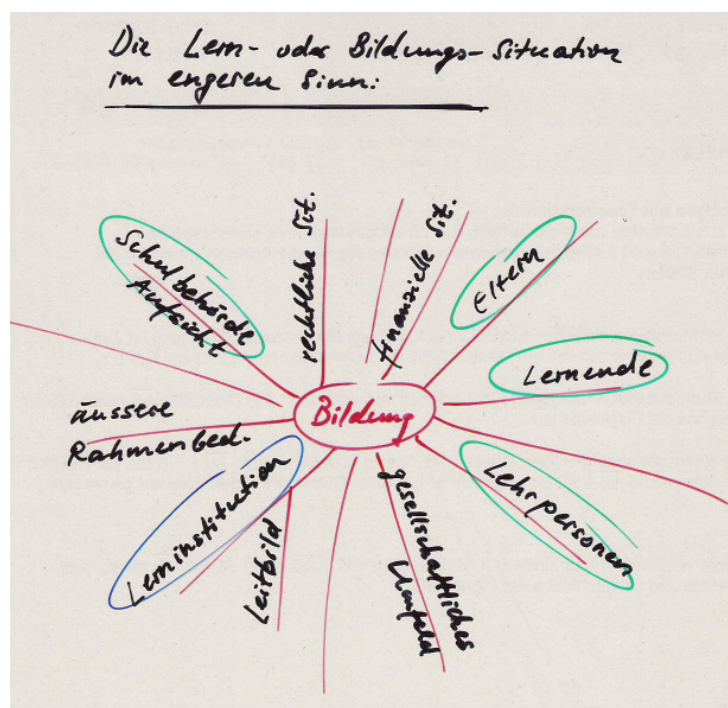 Die Lern- oder Bildungs-Situation
im engeren Sinn:
Schulbehörde
Aufsicht
rechtliche Sit.
finanzielle Sit.
Eltern
Lernende
Lehrpersonen
gesellschaftliches
Umfeld
Leitbild
Lerninstitution
äussere
Rahmenbed.
Bildung